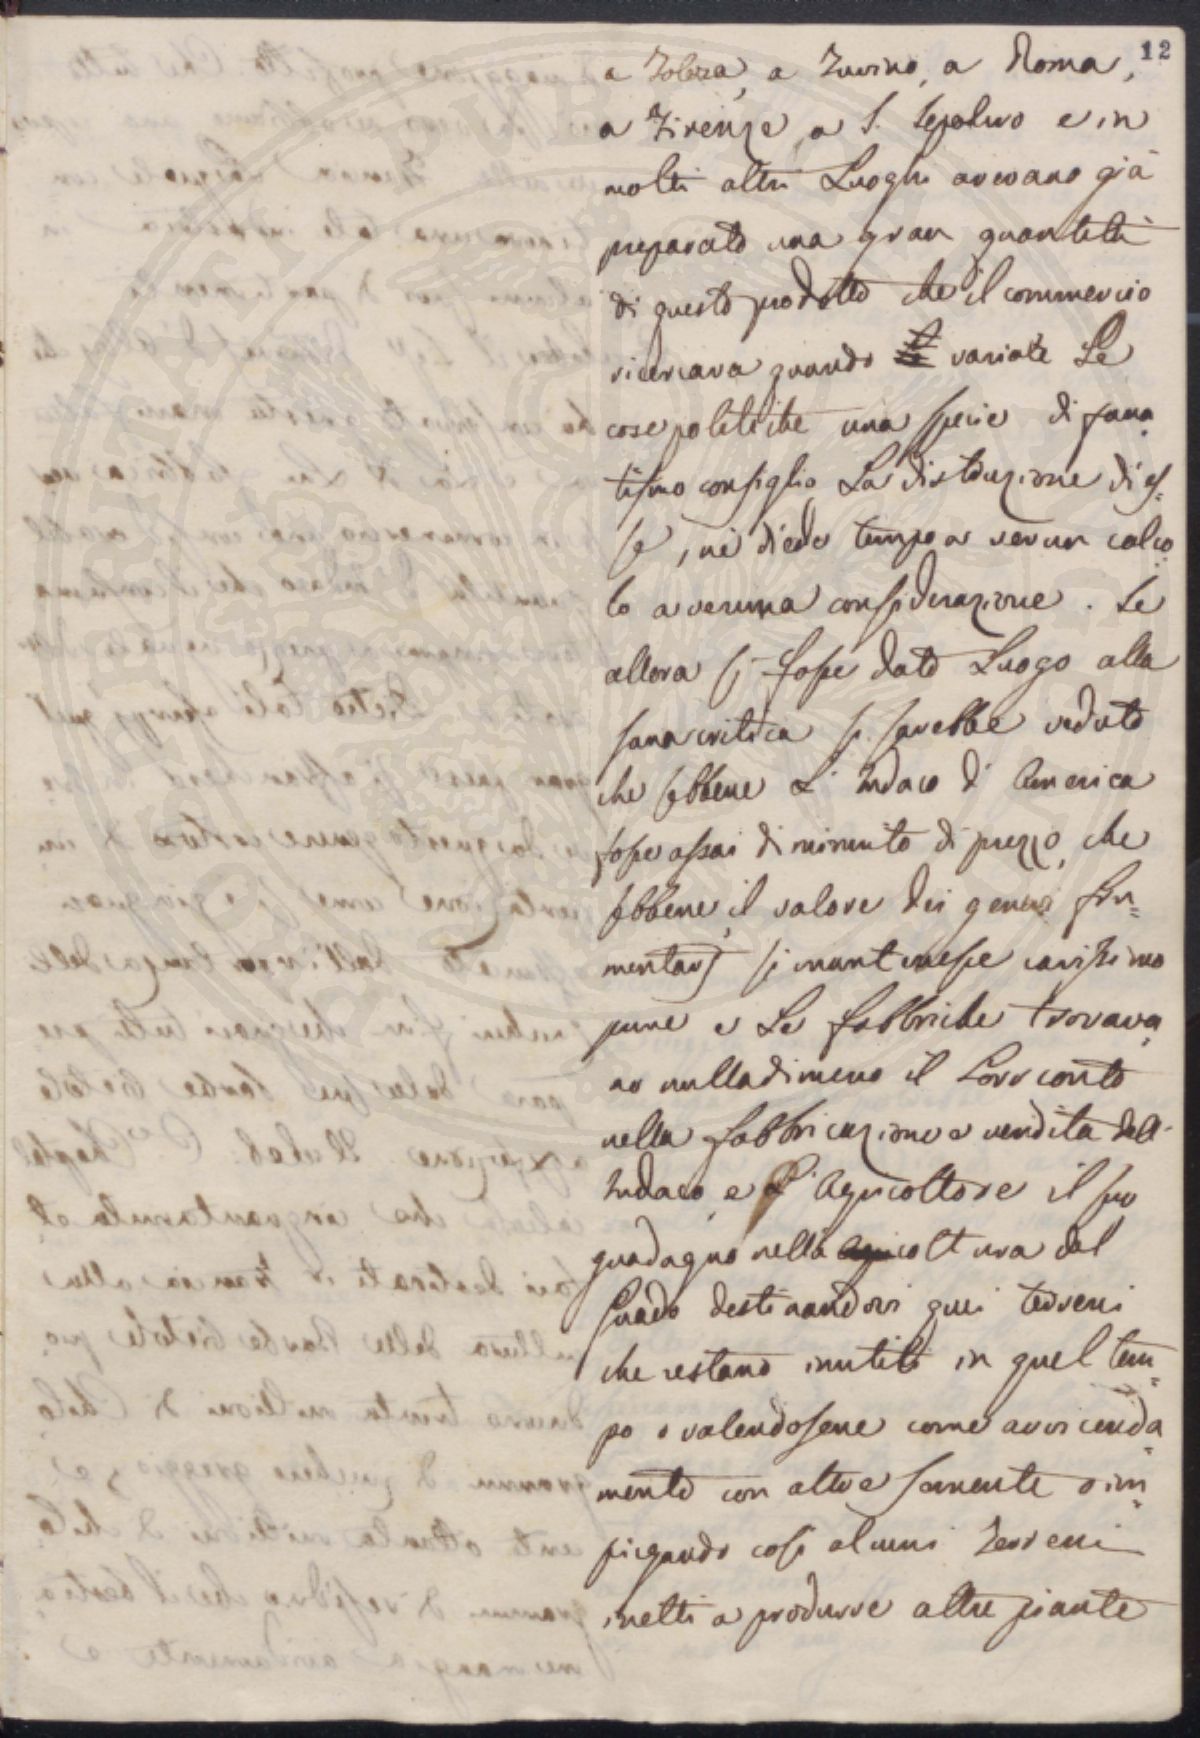 12
a Tolosa, a Turino, a Roma,
a Firenze, a S. Sepolcro e in
molti altri Luoghi avevano già
preparato una gran quantità
di questo prodotto che il commercio
ricercava quando variate Le
cose politiche una specie di fana
tismo consigliò La distruzione di es=
se, nè diede tempo a verun calco
lo a veruna considerazione. Se
allora si fosse dato Luogo alla
sana critica si sarebbe veduto
che sebbene L'Indaco d'America
fosse assai diminuito di prezzo, che
sebbene, il valore dei generi fru=
mentarj si mantenesse carissimo
pure e Le fabbriche trovava
no nulladimeno il Loro conto
nella fabbricazione e vendita dell'
Indaco, e L'Agricoltore il suo
guadagno nella coltura del
Guado destinandovi quei terreni
che restano inutili in quel tem=
po o valendosene come avvicenda=
mento con altre semente o im=
piegando così alcuni Terreni
inetti a produrre altre piante